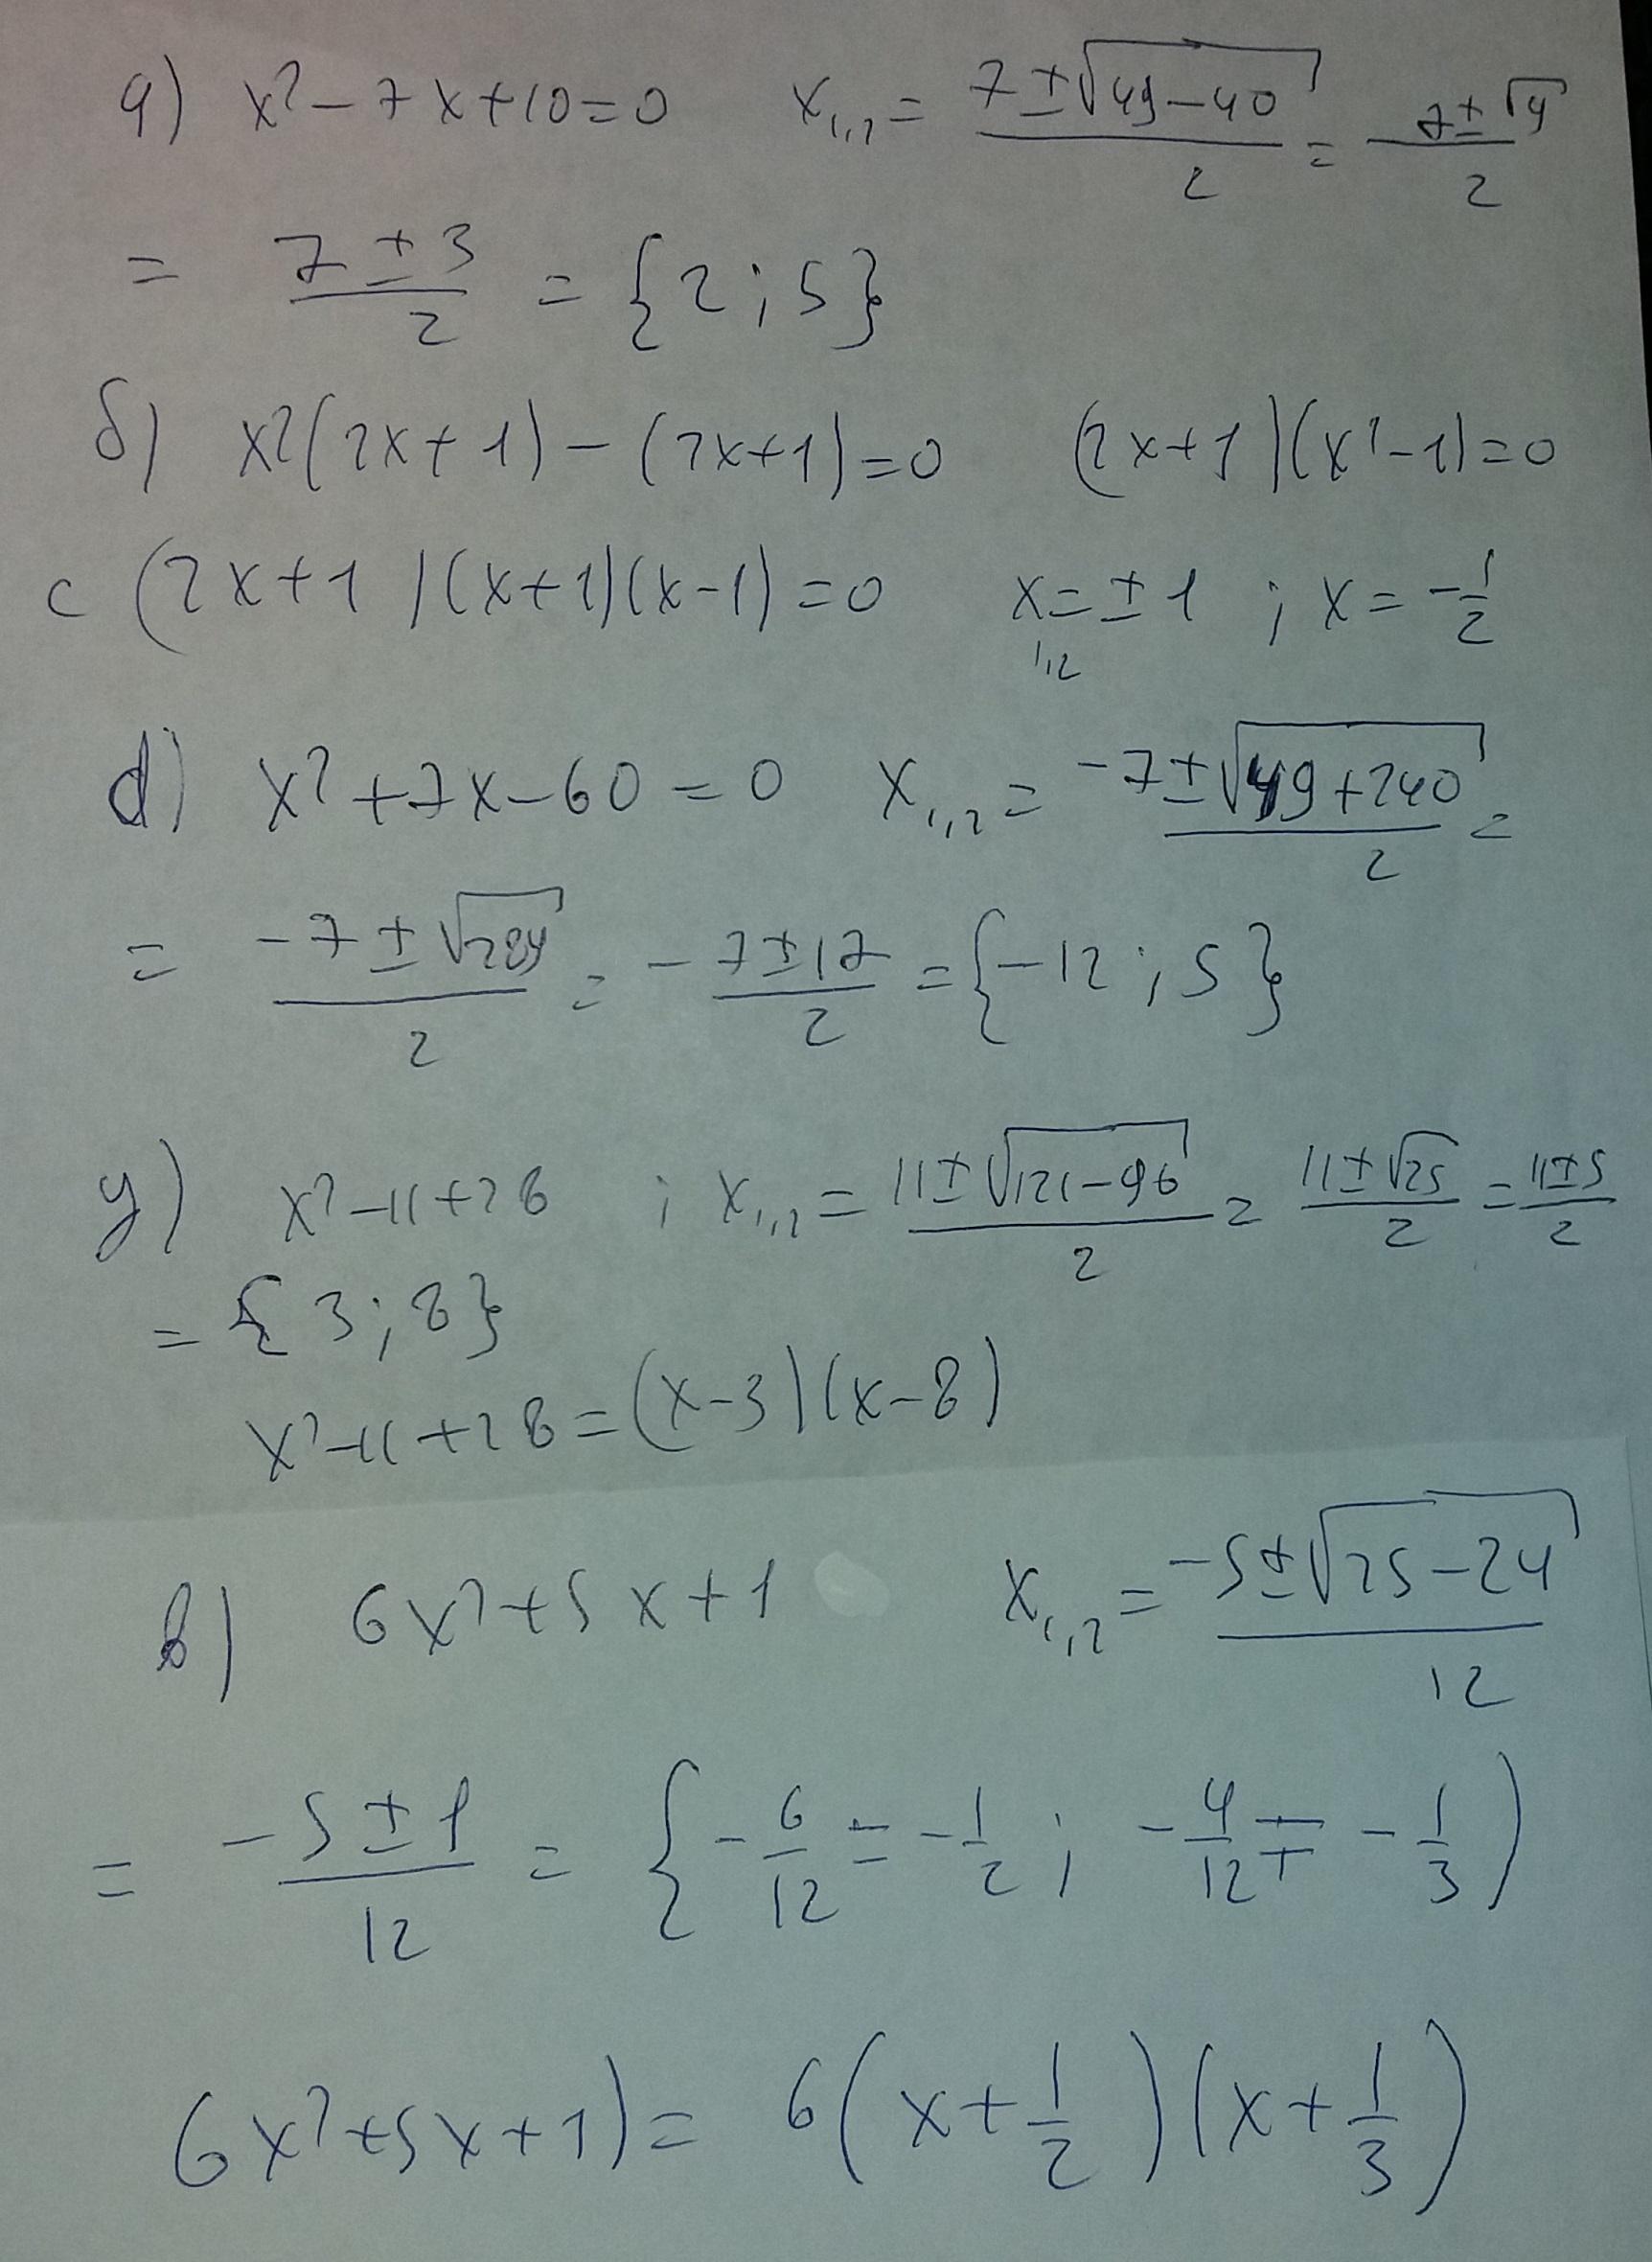 а) x² - 7x + 10 = 0 x₁,₂ = (7 ± √(49 - 40))/2 = (7 ± √9)/2
= (7 ± 3)/2 = {2; 5}
б) x²(2x + 1) - (2x + 1) = 0 (2x + 1)(x² - 1) = 0
c (2x + 1)(x + 1)(x - 1) = 0 x₁,₂ = ± 1 ; x = -1/2
d) x² + 7x - 60 = 0 x₁,₂ = (-7 ± √(49 + 240))/2 =
= (-7 ± √289)/2 = (-7 ± 17)/2 = {-12; 5}
y) x² - 11 + 28 ; x₁,₂ = (11 ± √(121 - 96))/2 = (11 ± √25)/2 = (11 ± 5)/2
= {3; 8}
x² - 11 + 28 = (x - 3)(x - 8)
в) 6x² + 5x + 1 x₁,₂ = (-5 ± √(25 - 24))/12
= (-5 ± 1)/12 = {-6/12 = -1/2; -4/12 = -1/3)
6x² + 5x + 1) = 6(x + 1/2)(x + 1/3)